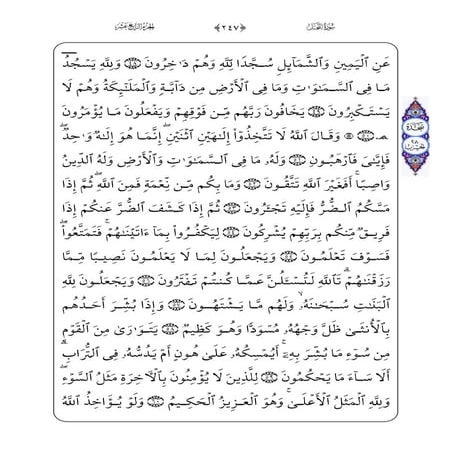 سُورَةُ النَّحْلِ ﴿٢٤٧﴾ الجزء الرابع عشر
عَنِ الْيَمِينِ وَالشَّمَآئِلِ سُجَّدًا لِّلَّهِ وَهُمْ دَاخِرُونَ وَلِلَّهِ يَسْجُدُ
مَا فِى السَّمَٰوَٰتِ وَمَا فِى الْأَرْضِ مِن دَآبَّةٍ وَالْمَلَٰٓئِكَةُ وَهُمْ لَا
يَسْتَكْبِرُونَ يَخَافُونَ رَبَّهُم مِّن فَوْقِهِمْ وَيَفْعَلُونَ مَا يُؤْمَرُونَ
وَقَالَ اللَّهُ لَا تَتَّخِذُوٓا۟ إِلَٰهَيْنِ اثْنَيْنِ إِنَّمَا هُوَ إِلَٰهٌ وَٰحِدٌ
فَإِيَّٰىَ فَارْهَبُونِ وَلَهُۥ مَا فِى السَّمَٰوَٰتِ وَالْأَرْضِ وَلَهُ الدِّينُ
وَاصِبًا أَفَغَيْرَ اللَّهِ تَتَّقُونَ وَمَا بِكُم مِّن نِّعْمَةٍ فَمِنَ اللَّهِ ثُمَّ إِذَا
مَسَّكُمُ الضُّرُّ فَإِلَيْهِ تَجْـَٔرُونَ ثُمَّ إِذَا كَشَفَ الضُّرَّ عَنكُمْ إِذَا
فَرِيقٌ مِّنكُم بِرَبِّهِمْ يُشْرِكُونَ لِيَكْفُرُوا۟ بِمَآ ءَاتَيْنَٰهُمْ فَتَمَتَّعُوا۟
فَسَوْفَ تَعْلَمُونَ وَيَجْعَلُونَ لِمَا لَا يَعْلَمُونَ نَصِيبًا مِّمَّا
رَزَقْنَٰهُمْ تَاللَّهِ لَتُسْـَٔلُنَّ عَمَّا كُنتُمْ تَفْتَرُونَ وَيَجْعَلُونَ لِلَّهِ
الْبَنَٰتِ سُبْحَٰنَهُۥ وَلَهُم مَّا يَشْتَهُونَ وَإِذَا بُشِّرَ أَحَدُهُم
بِالْأُنثَىٰ ظَلَّ وَجْهُهُۥ مُسْوَدًّا وَهُوَ كَظِيمٌ يَتَوَٰرَىٰ مِنَ الْقَوْمِ
مِن سُوٓءِ مَا بُشِّرَ بِهِۦٓ أَيُمْسِكُهُۥ عَلَىٰ هُونٍ أَمْ يَدُسُّهُۥ فِى التُّرَابِ
أَلَا سَآءَ مَا يَحْكُمُونَ لِلَّذِينَ لَا يُؤْمِنُونَ بِالْءَاخِرَةِ مَثَلُ السَّوْءِ
وَلِلَّهِ الْمَثَلُ الْأَعْلَىٰ وَهُوَ الْعَزِيزُ الْحَكِيمُ وَلَوْ يُؤَاخِذُ اللَّهُ
سجدة